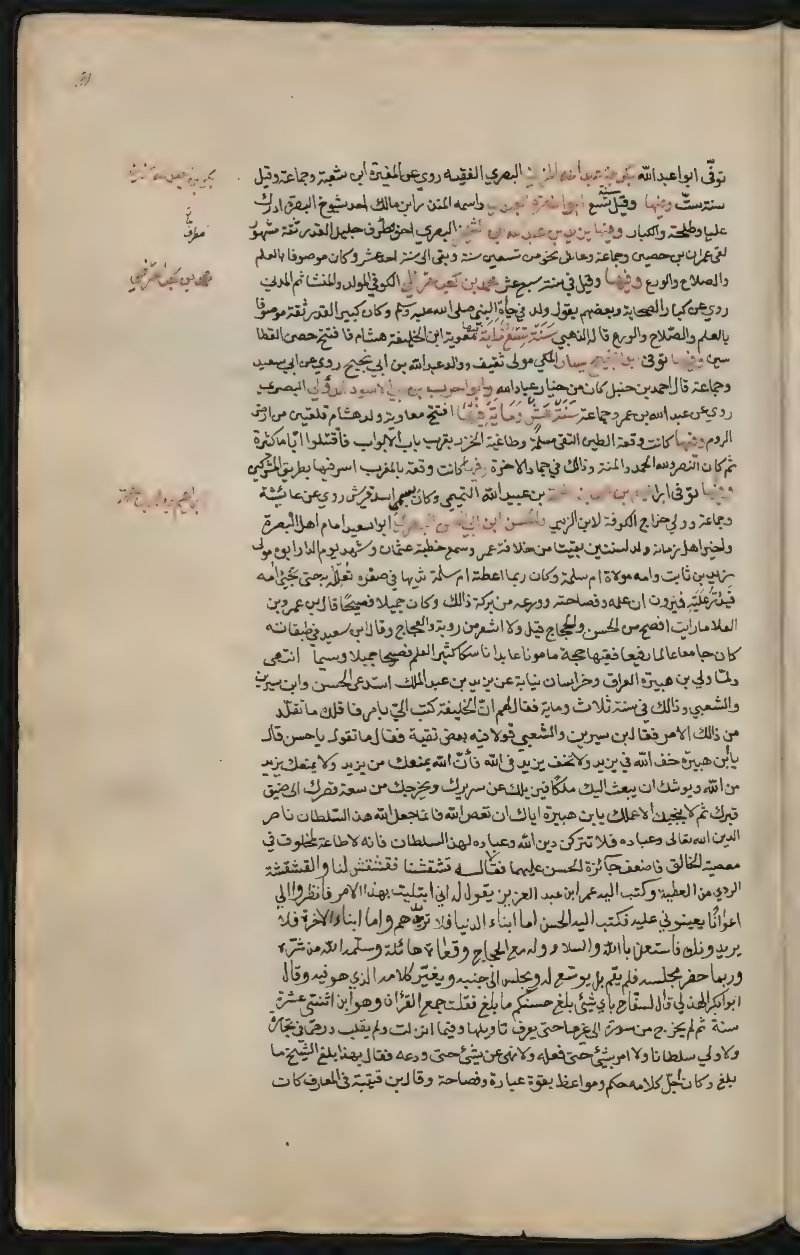 توفّى ابو عبد الله بكر بن عبد الله المزني البصري الفقيه روي عن المغيرة ابن شعبة وجماعة وقيل
سنة ستّ وفيها وقيل سنة تسع ابو نضرة العبدي واسمه المنذر ابن مالك احد شيوخ البصرة ادرك
عليا وطلحة والكبار وفيها يزيد بن عبد الله بن الشخير البصري اخو مطرف جليل القدر ثقة مشهور
لقى عمران بن حصين وجماعة وعاش نحو من تسعين سنة وبقى الى سنة احد عشر وكان موصوفا بالعلم
والصلاح والورع وفيها وقيل في سنة سبع عشر محمد بن كعب القرظي الكوفي المولد والمنشا ثم المدني
روي عن كبار الصحابة وبعضهم يقول ولد في حياة النبي صلى الله عليه وسلم وكان كبير القدر ثقة موصوفا
بالعلم والصّلاح والورع قاله الذهبي سنة تسع ومائة فيها معوية ابن الخليفة هشام فافتتح حصن القطا
سين وفيها توفى ابو نجيح يسار المكي مولى ثقيف ووالد عبد الله بن أبي نجيح روي عن ابي سعيد
وجماعة قال احمد بن حنبل كان من خيار عباد الله وابو حرب بن ابي الاسود الدؤلي البصري
روي عن عبد الله بن عمر وجماعة سنة عشر ومائة فيها افتتح معاوية ولد هشام قلعتين من ارض
الروم وفيها كانت وقعة الطين التقى مسلمة وطاغية الخزر بقرب باب الابواب فاقتتلوا ايّاما كثيرة
ثم كان النصر ولله الحمد والمنة وذلك في جماد الاخرة وفيها كانت وقعة بالمغرب اسر فيها بطريق المشركين
وفيها توفى ابراهيم بن محمد بن طلحة بن عبيد الله التيمي وكان يسمى اسد قريش روي عن عائشة
وجماعة وولي خراج الكوفة لابن الزبير والحسن ابن ابي الحسن البصري ابو سعيد امام اهل البصرة
وخير اهل زمانه ولد لسنتين بقيتا من خلافة عمر وسمع خطبة عثمان وشهد يوم الدار ابوه مولى
زيد بن ثابت وامه مولاة ام سلمة وكان ربما اعطته ام سلمة ثديها في صغره تعلله به حتى تجئ امه
فيدرّ عليه فيرون ان علمه وفصاحته وورعه من بركة ذالك وكان جميلا فصيحًا قال ابن عمرو بن
العلا ما رايت افصح من الحسن والحجاج قيل ولا اشعر من روبة والعجاج وقال ابن سعيد في طبقاته
كان جامعا عالما رفيعا فقيها حجة مامونا عابدا ناسكا كثير العلم فصيحا جميلا وسيما انتهى
ولمّا ولي بن هبيرة العراق وخراسان نيابة عن يزيد بن عبد الملك استدعى الحسن وابن سيرين
والشعبي وذالك في سنة ثلاث وماية فقال لهم انّ الخليفة كتب اليّ بامر فاقلّده ما تقلّد
من ذالك الامر فقال ابن سيرين والشعبي قولا فيه بعض تقية فقال ما تقول يا حسن قال
يابن هبيرة خف الله في يزيد ولا تخف يزيد في الله فانّ الله يمنعك من يزيد ولا يمنعك يزيد
من الله ويوشك ان يبعث اليك ملكًا فيزيلك عن سريرك ويخرجك من سعة قصرك الى ضيق
قبرك ثم لا ينجيك الا عملك يابن هبيرة اياك ان تعصى الله فانما جعل الله هذا السّلطان ناصر
الدين الله تعالى وعباده فلا تتركن دين الله وعباده لهذا السلطان فانه لا طاعة لمخلوق في
معصية الخالق فاضعف جائزة الحسن عليهما فقال له تشقشنا فقشقش لنا والقشقشة
الردي من العطية وكتب اليه عمر ابن عبد العزيز يقول له اني ابتليت بهذا الامر فانظروا لي
اعوانًا يعينوني عليه فكتب اليه الحسن اما ابناء الدنيا فلا تريدهم واما ابناء الاخرة فلا
يريدونك فاستعن بالله والسلام وله مع الحجاج وقعات هائلة وسلّمه الله من شره
وربما حضر مجلسه فلم يقم بل يوسّع له ويجلس الى جنبه ويغيّر كلامه الذي هو فيه وقال
ابو بكر الهذلي قال السفاح باي شيئ بلغ حسنكم ما بلغ فقلت جمع القرأن وهو ابن اثنتى عشرة
سنة ثم لم يخرج من سورة الى غيرها حتى يعرف تاويلها وفيما انزلت ولم يقلب درهمًا في تجارة
ولا ولي سلطانا ولا امر بشيئ حتى فعله ولا نهى عن شيئ حتى ودعه فقال بهذا بلغ الشيخ ما
بلغ وكان أجلّ كلامه حكم ومواعظ بقوة عبارة وفصاحة وقال ابن قتيبة في المعارف كانت
مطرف
محمد بن كعب القرظي